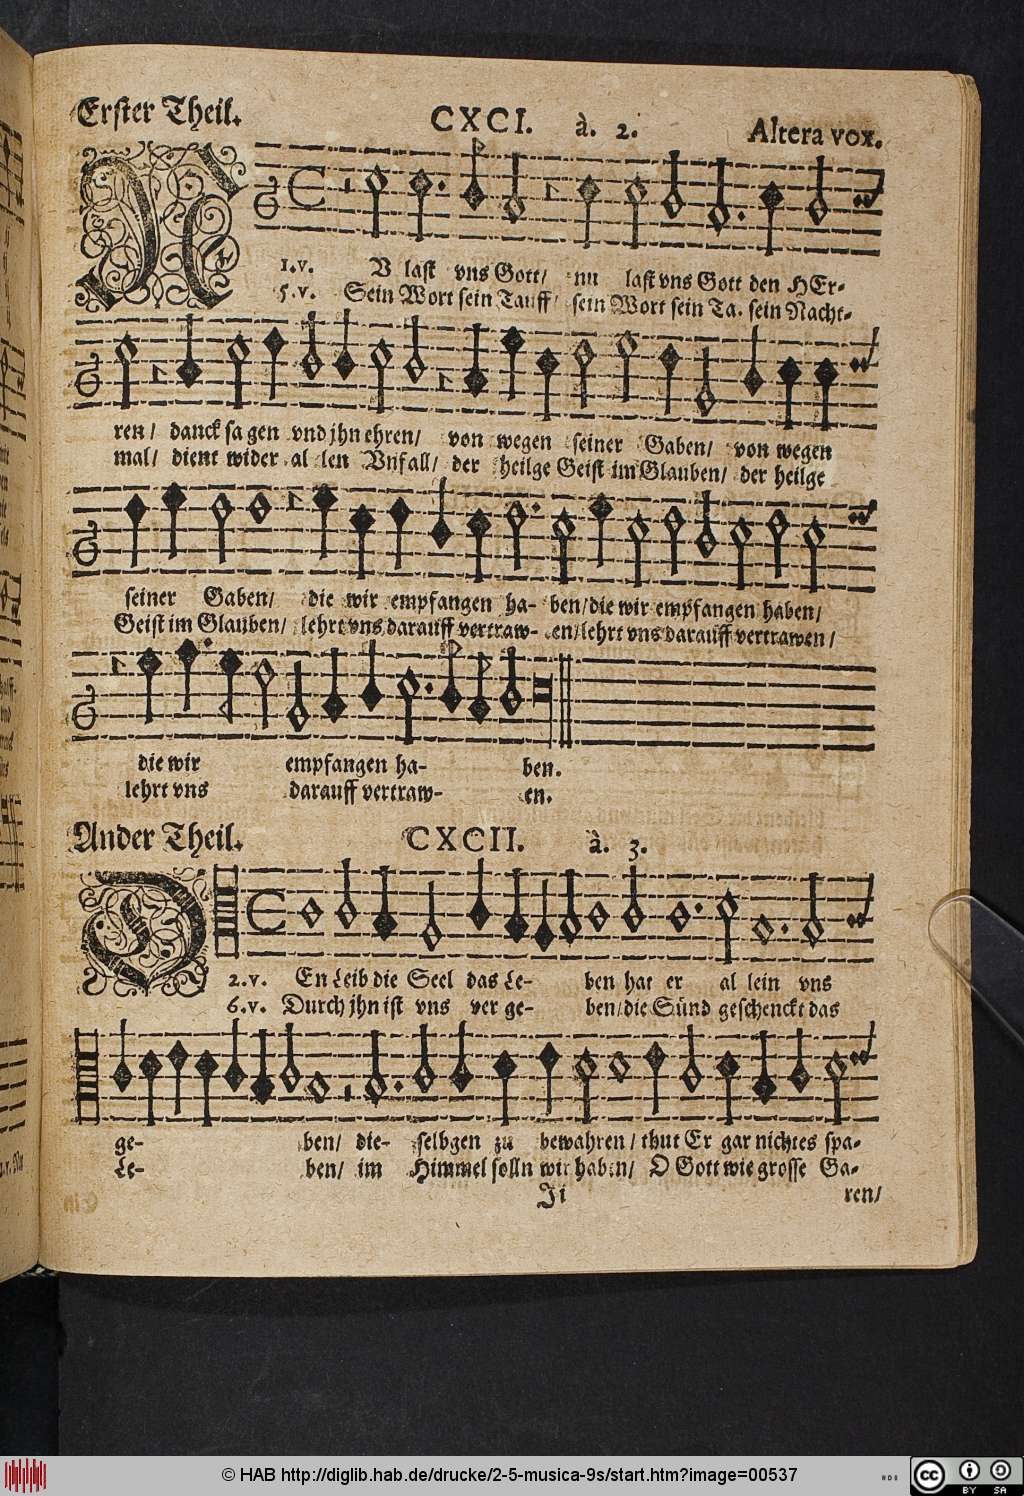 Erster Theil. CXCI. à. 2. Altera vox.
1.v. NU last vns Gott/ nu last vns Gott den HEr-
5.v. Sein Wort sein Tauff/ sein Wort sein Ta. sein Nacht-
ren/ danck sa gen vnd jhn ehren/ von wegen seiner Gaben/ von wegen
mal/ dient wider al len Vnfall/ der heilge Geist im Glauben/ der heilge
seiner Gaben/ die wir empfangen ha- ben/die wir empfangen haben/
Geist im Glauben/ lehrt vns darauff vertraw- en/lehrt vns darauff vertrawen/
die wir empfangen ha- ben.
lehrt vns darauff vertraw- en.
Ander Theil. CXCII. à. 3.
2.v. DEn Leib die Seel das Le- ben hat er al lein vns
6.v. Durch jhn ist vns ver ge- ben/die Sünd geschenckt das
ge- ben/ die- selbgen zu bewahren/ thut Er gar nichtes spa-
Le- ben/ im Himmel solln wir haben/ O Gott wie grosse Ga-
Ii ren/
© HAB http://diglib.hab.de/drucke/2-5-musica-9s/start.htm?image=00537
cc BY SA